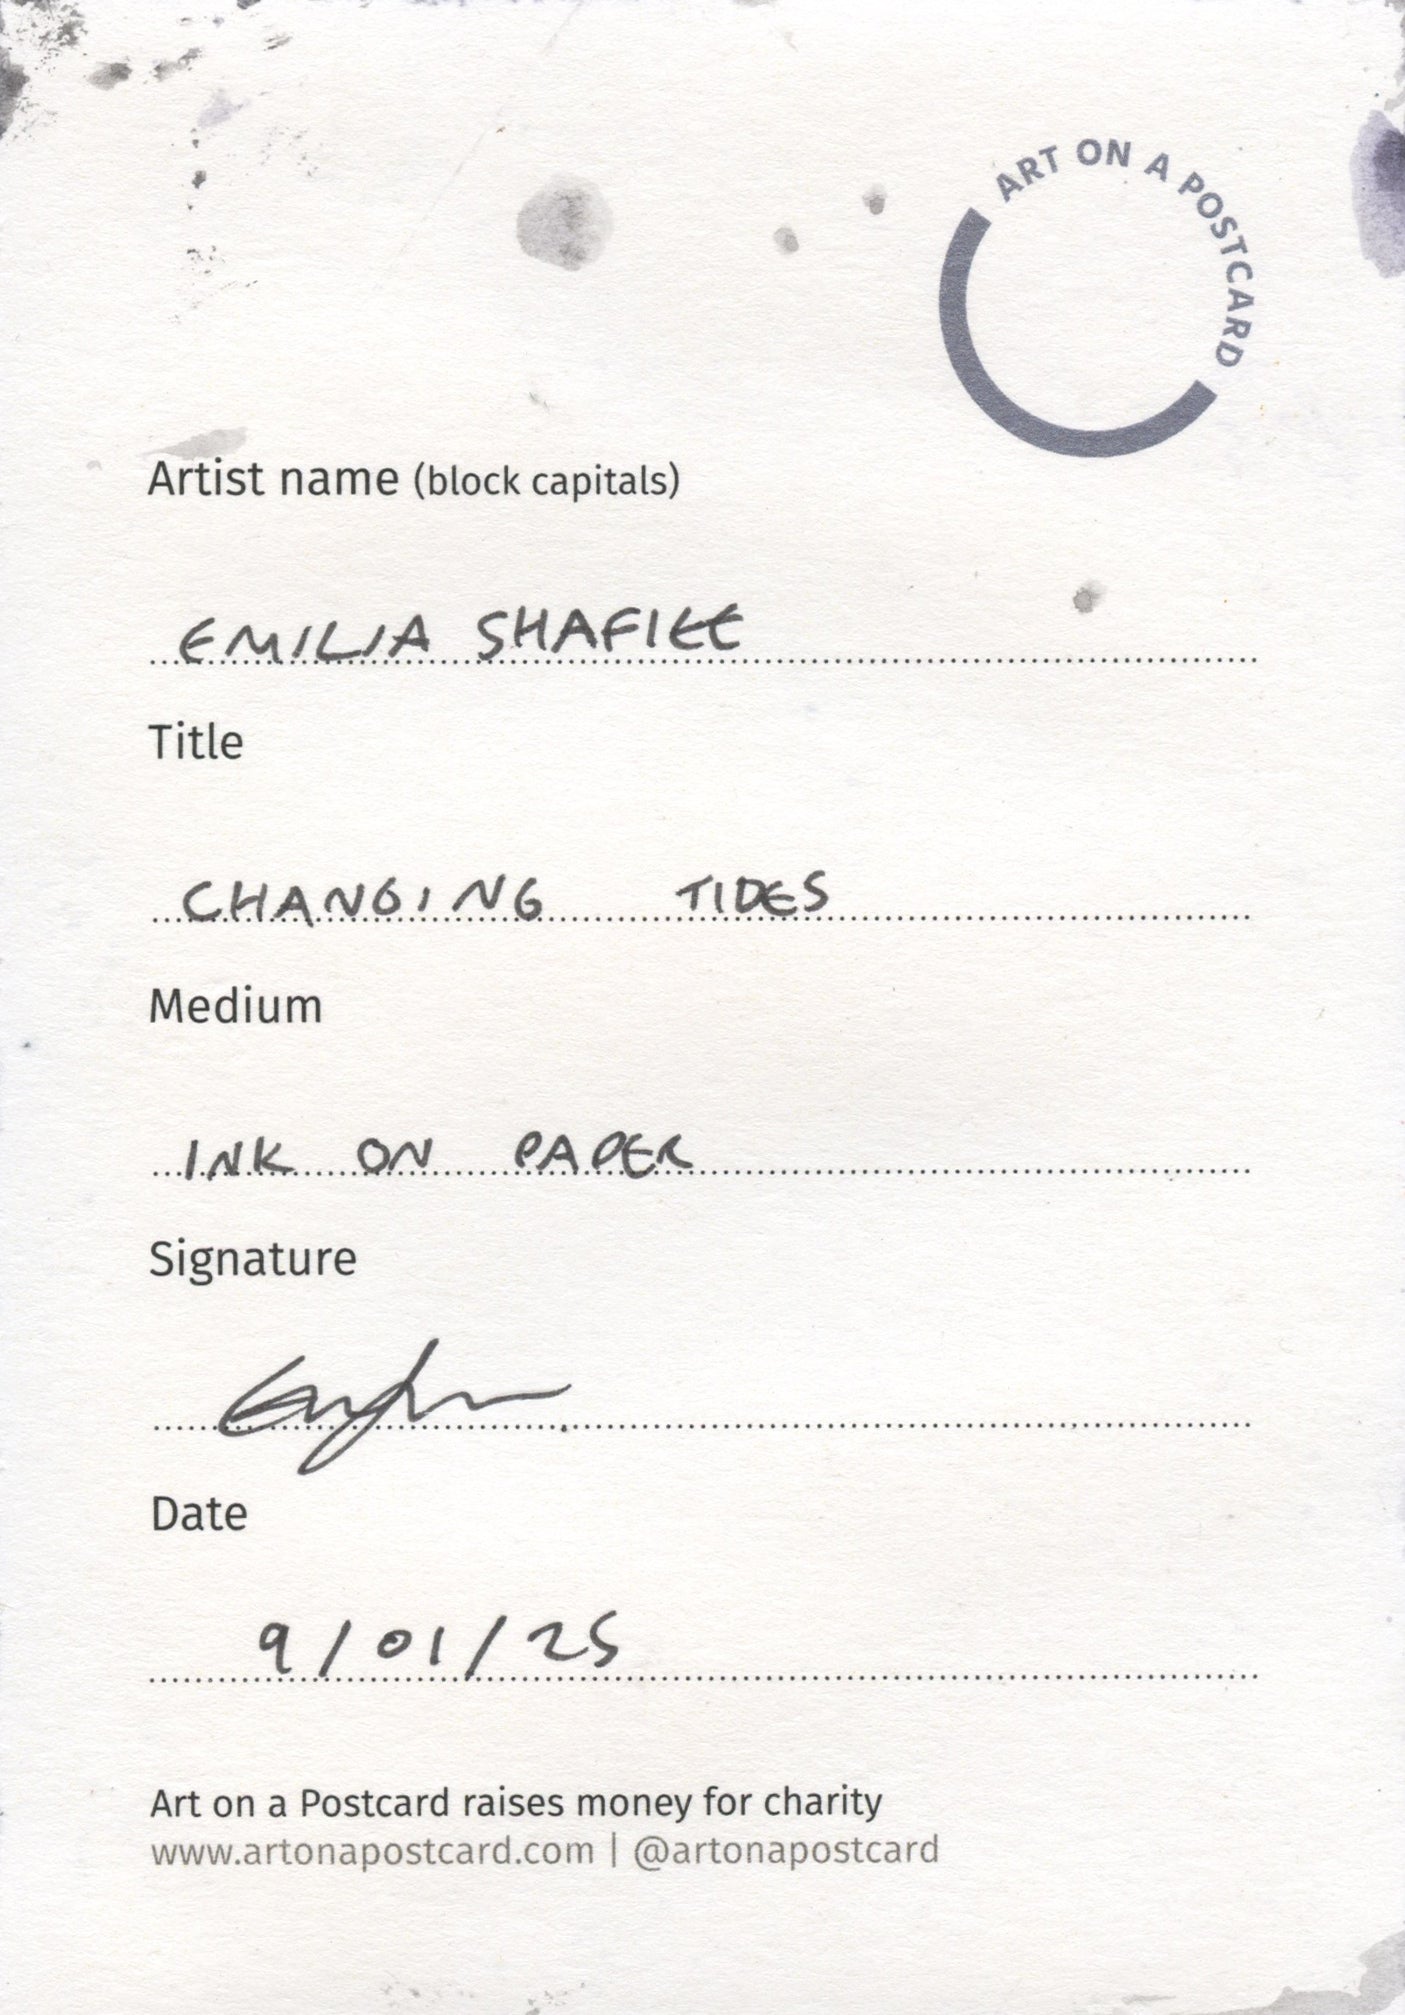 ART ON A POSTCARD
Artist name (block capitals)
EMILIA SHAFIEE
Title
CHANGING TIDES
Medium
INK ON PAPER
Signature
Date
9/01/25
Art on a Postcard raises money for charity
www.artonapostcard.com | @artonapostcard